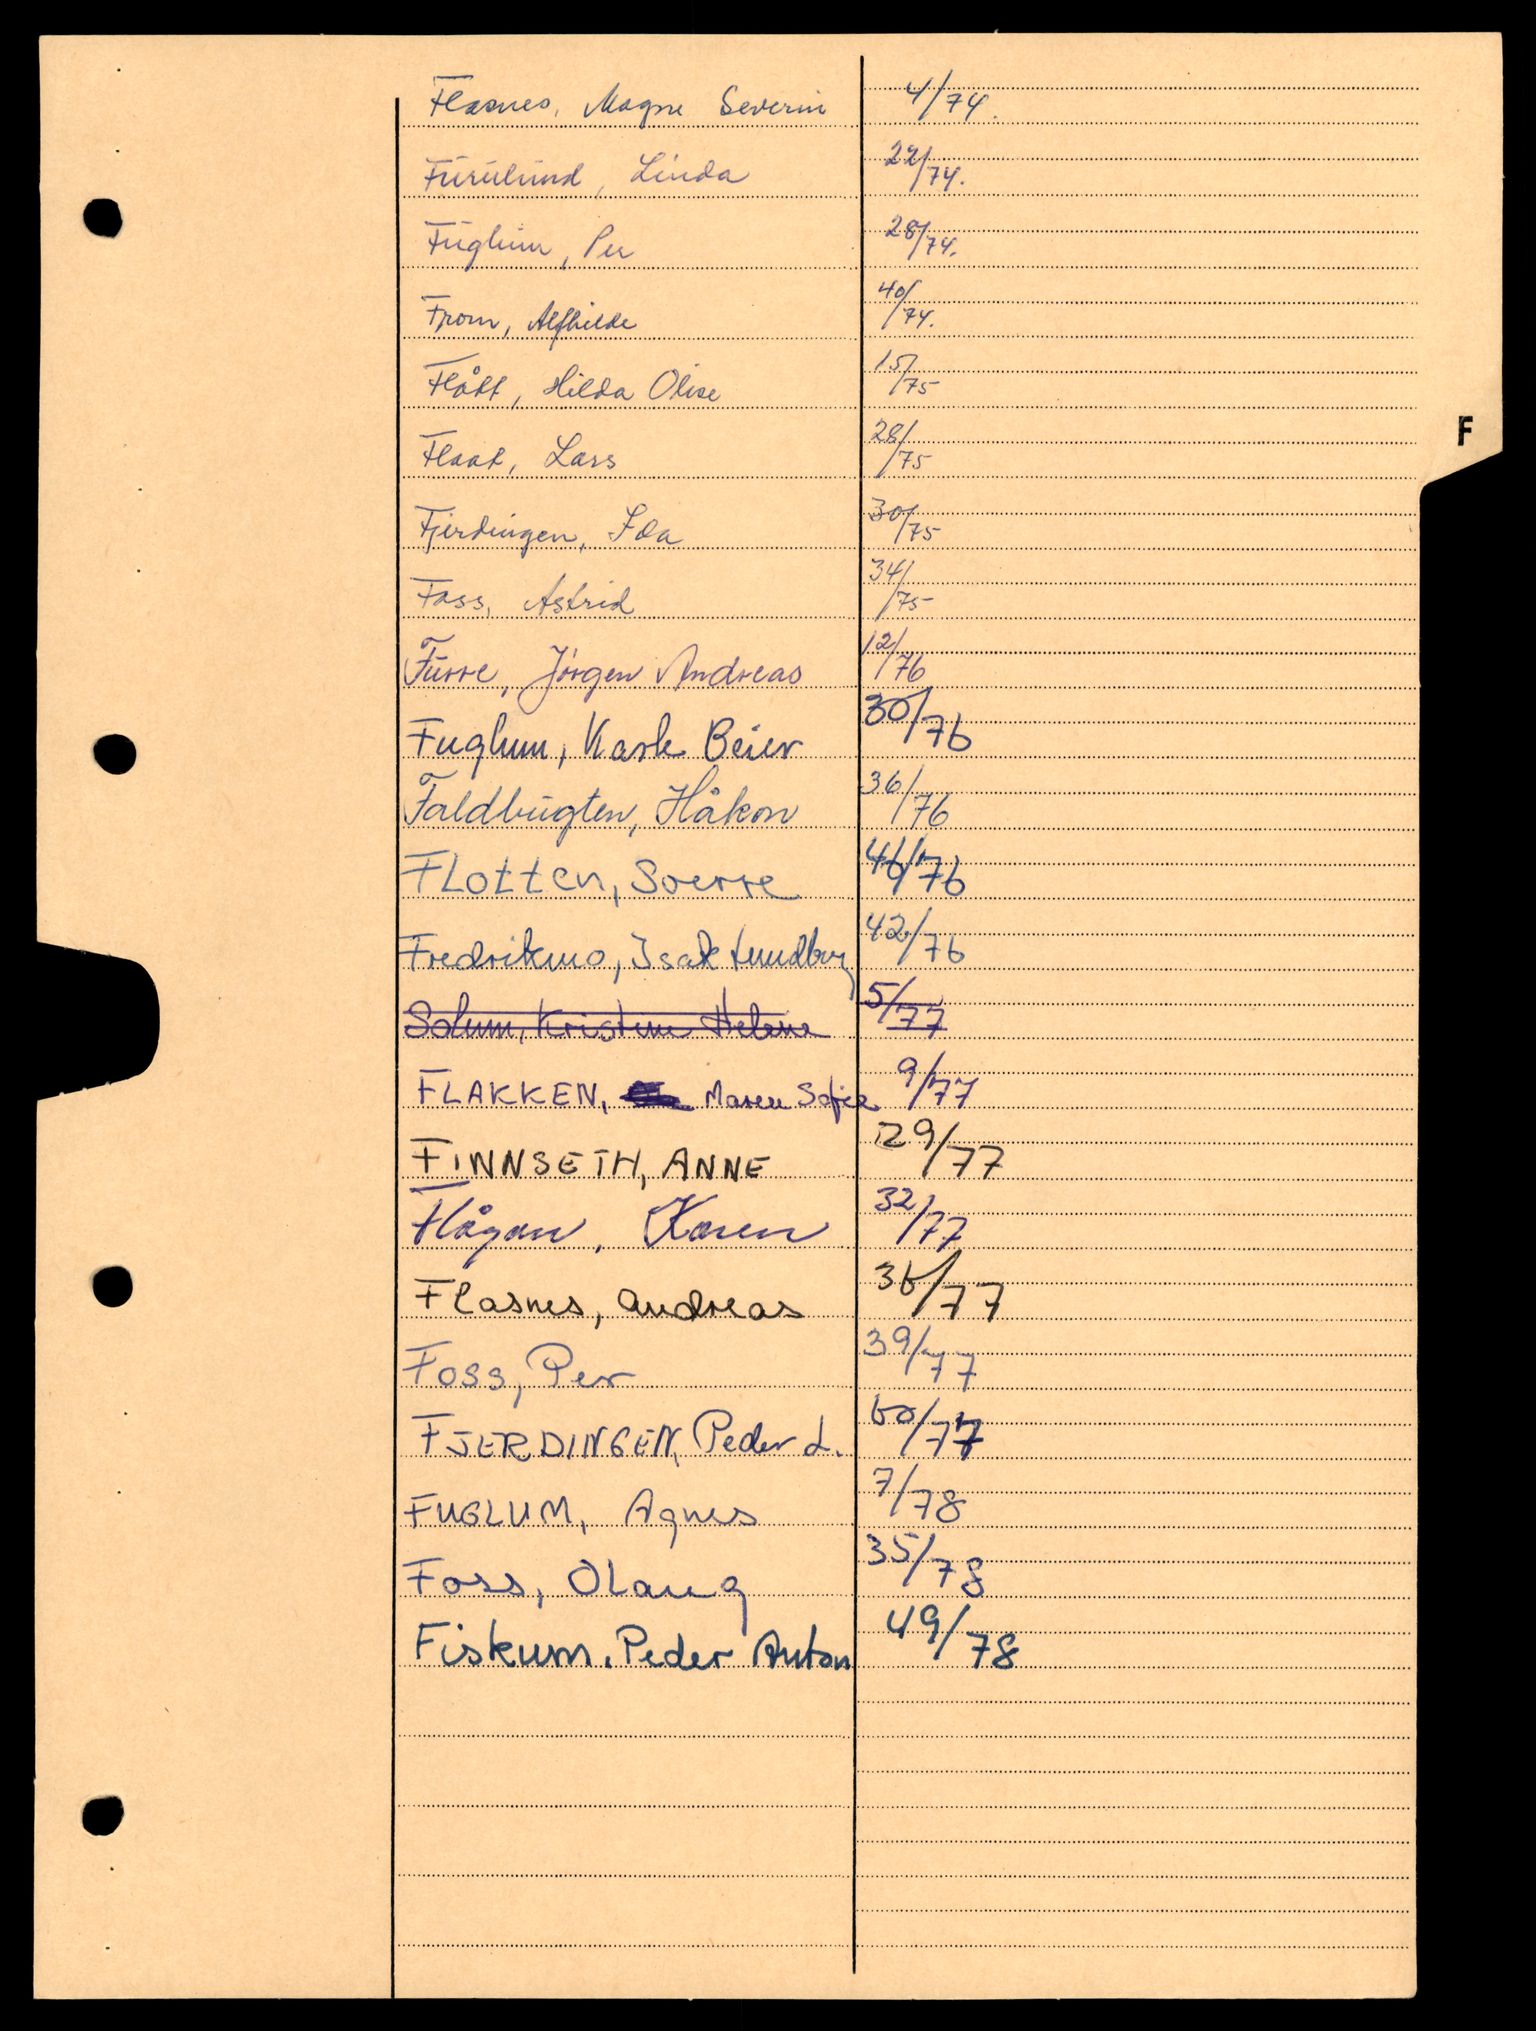 Flasnes, Magne Severin 4/74.
Furulund, Linda 22/74.
Fuglum, Per 28/74.
From, Alfhilde 40/74.
Flått, Hilda Olise 15/75
Flaat, Lars 28/75
F
Fjerdingen, Ida 30/75
Foss, Astrid 34/75
Furre, Jörgen Andreas 12/76
Fuglum, Karle Beier 30/76
Faldbugten, Håkon 36/76
FLotten, Sverre 46/76
Fredrikmo, Isak Lundberg 42/76
Solum, Kristine Helene 5/77
FLAKKEN, Maren Sofie 9/77
FINNSETH, ANNE 29/77
Flågan, Karen 32/77
Flasnes, Andreas 36/77
Foss, Per 39/77
FJERDINGEN, Peder L. 60/77
FUGLUM, Agnes 7/78
Foss, OLaug 35/78
Fiskum, Peder Anton 49/78